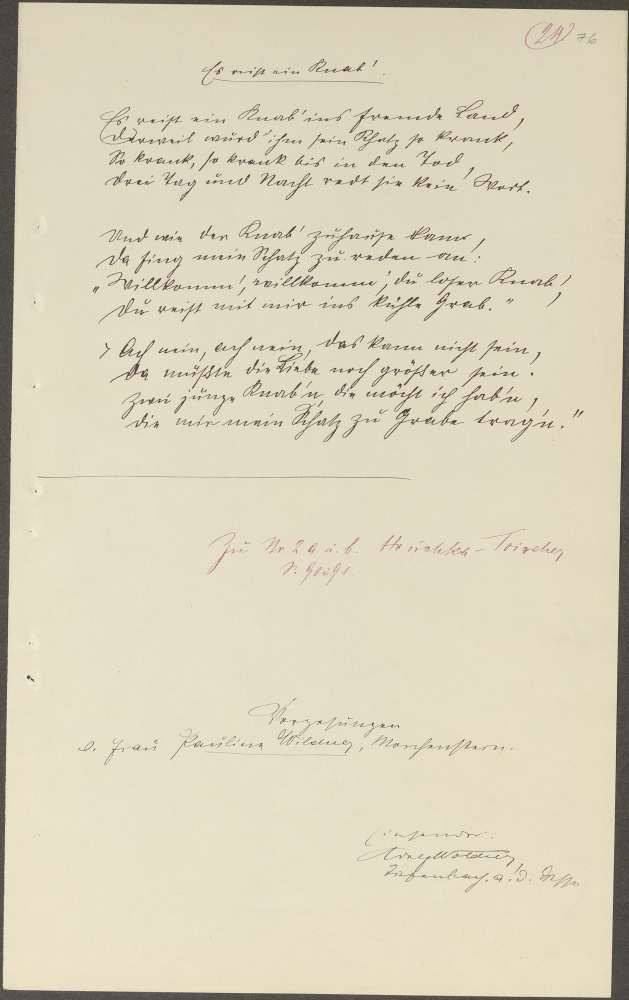 24 76
Es reist ein Knab'.
Es reist ein Knab' ins fremde Land,
Derweil wurd' ihm sein Schatz so krank,
So krank, so krank bis in den Tod,
Drei Tag und Nacht redt sie kein Wort.
Und wie der Knab' zuhause kam,
Da fing mein Schatz zu reden an:
„Willkomm', willkomm', du loser Knab'!
Du reist mit mir ins kühle Grab."
Ach nein, ach nein, das kann nicht sein,
Da müßte die Liebe noch größer sein.
Zwei junge Knab'n, die möcht ich hab'n,
Die mir mein Schatz zu Grabe trag'n."
Zu Nr 2 a u. b. Hruschka-Toischer
S. 90 u 91.
Vorgesungen
v. Frau Pauline Wildner, Morchenstern.
Einsender:
Adolf Wildner,
Tiefenbach a. d. Desse